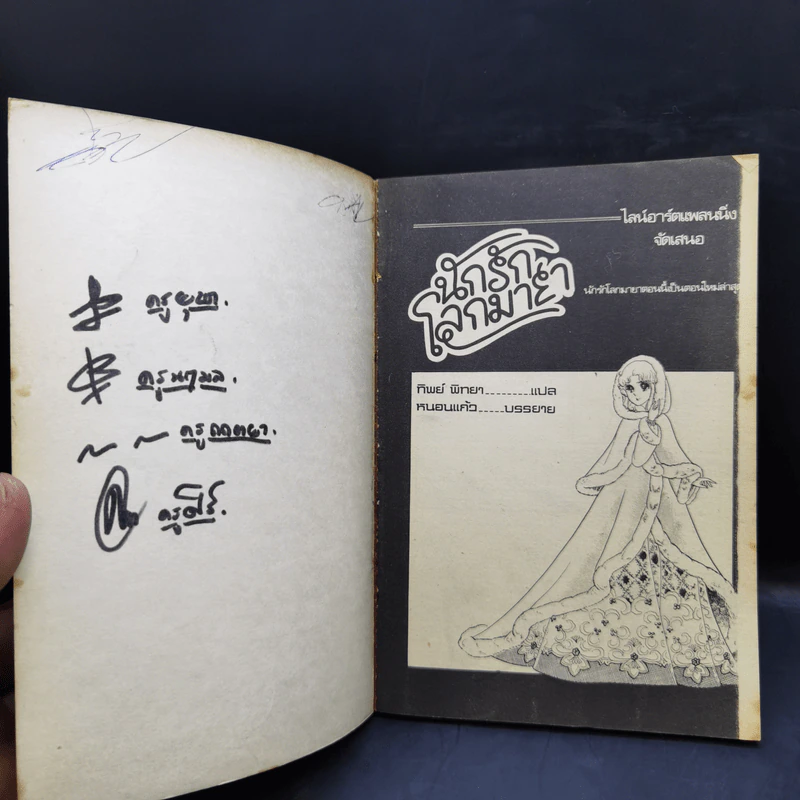 ครูยุพา.
ครูนฤมล.
ครู
ครู
ไลน์อาร์ตแพลนนิ่ง
จัดเสนอ
นักรัก
โลกมายา
นักรักโลกมายาตอนนี้เป็นตอนใหม่ล่าสุด
ทิพย์ พิทยา.........แปล
หนอนแก้ว.....บรรยาย